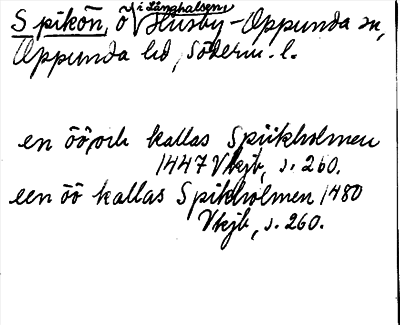 Spikön, ö i Långhalsen, Husby-Oppunda sn,
Oppunda hd, Söderm. l.
en öö och kallas Spiikholmen
1447 Vkjb, s. 260.
een öö kallas Spikholmen 1480
Vkjb, s. 260.